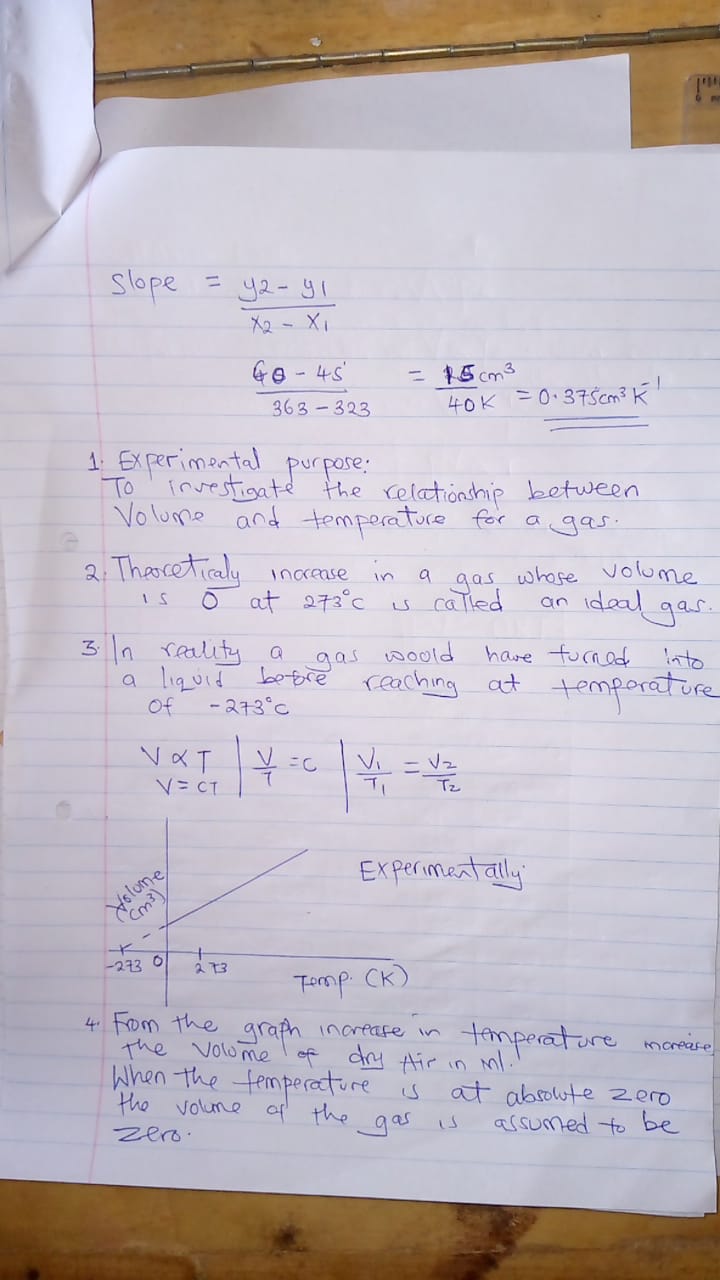 Slope = y2 - y1
x2 - x1
60 - 45 = 15 cm³
363 - 323 40K = 0.375cm³ K⁻¹
1. Experimental purpose:
To investigate the relationship between
Volume and temperature for a gas.
2. Theoreticaly increase in a gas whose volume
is 0 at 273°c is called an ideal gas.
3. In reality a gas woold have turned into
a liquid before reaching at temperature
of -273°c
V ∝ T | V/T = C | V1/T1 = V2/T2
V = CT
Experimentally
Volume
(cm³)
-273 0 273
Temp. (K)
4. From the graph increase in temperature increase
the volume of dry Air in ml.
When the temperature is at absolute zero
the volume of the gas is assumed to be
zero.